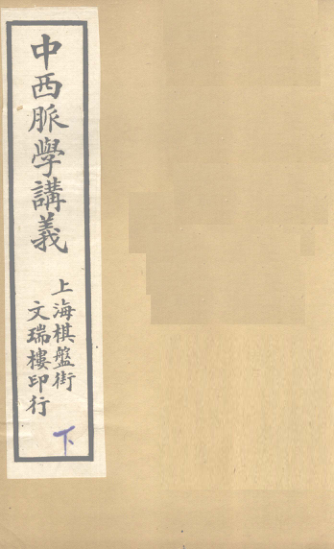 中西脈學講義
上海棋盤街
文瑞樓印行
下